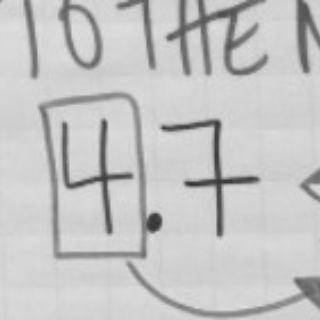 TO THE N
4.7